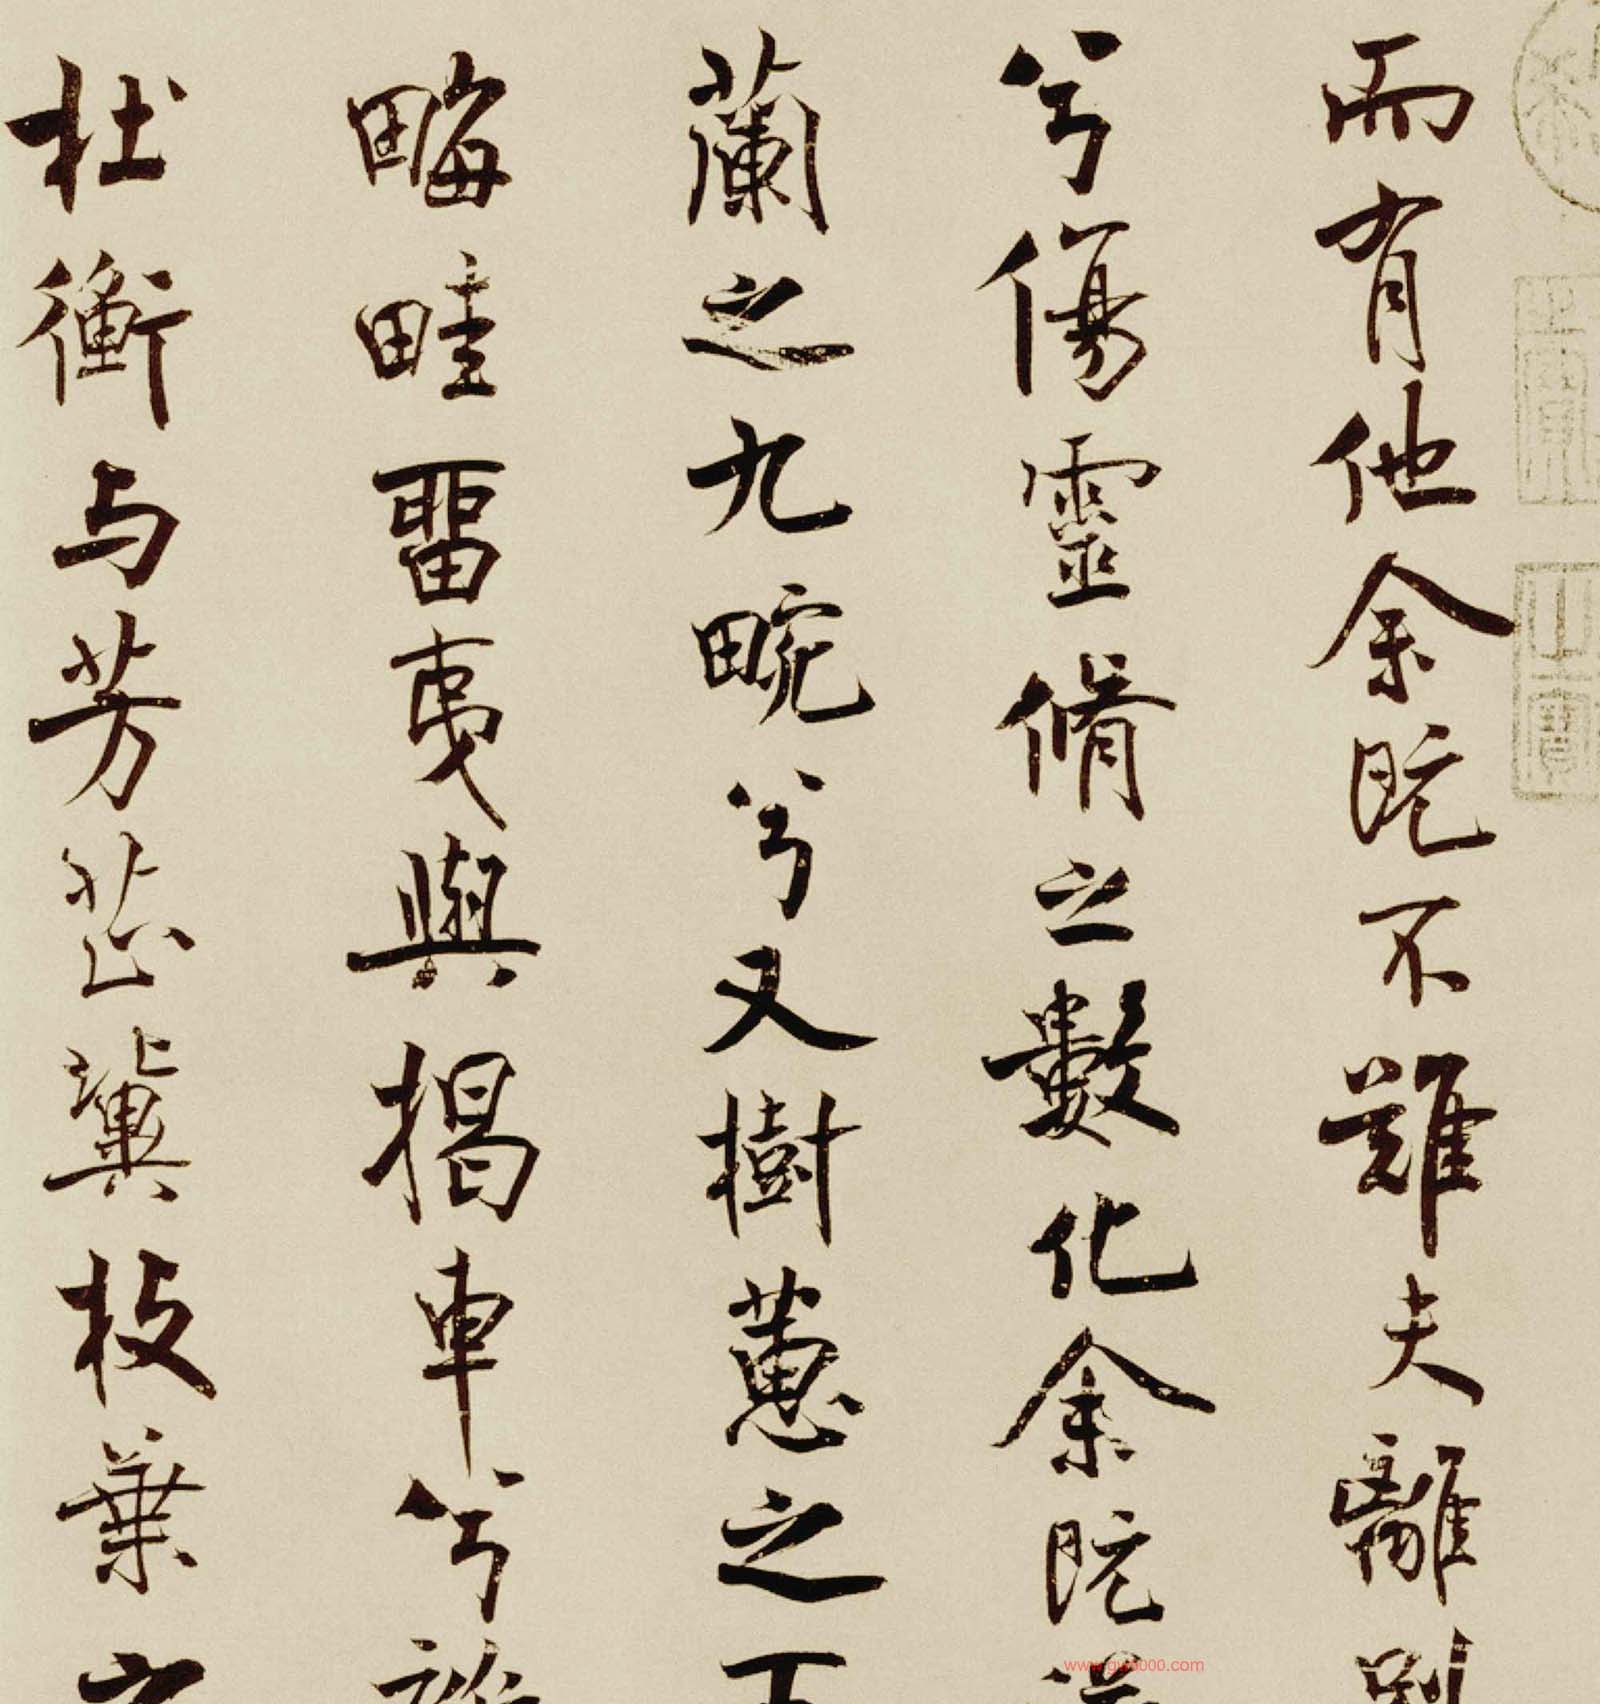 而有他余既不難夫離別
兮傷靈脩之數化余既滋
蘭之九畹兮又樹蕙之百
畮畦畱夷與揭車兮雜
杜衡与芳芷冀枝葉之
www.gw8000.com